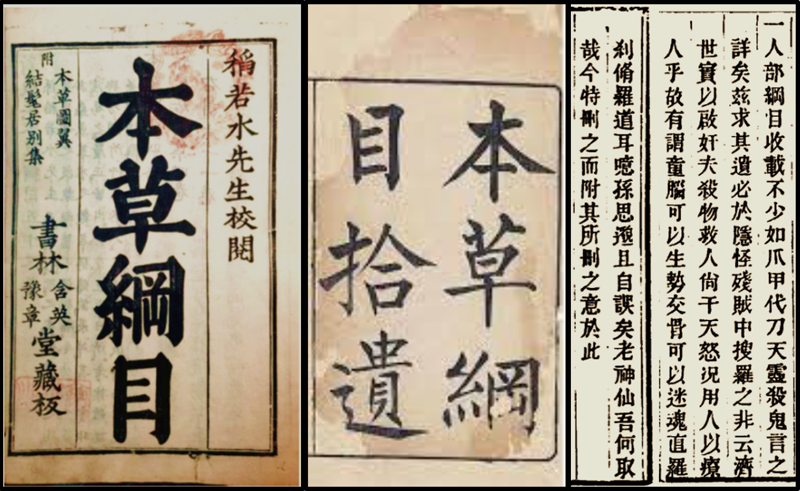 稻若水先生校閱
本草綱目
附
本草圖翼
結髦居別集
書林
含英
豫章
堂藏板
本草綱
目拾遺
一人部綱目收載不少如爪甲代刀天靈殺鬼言之
詳矣茲求其遺必於隱怪殘賊中搜羅之非云濟
世實以啟奸夫殺物救人尙干天怒况用人以療
人乎故有謂童腦可以生勢交骨可以迷魂直羅
剎脩羅道耳噫孫思邈且自誤矣老神仙吾何取
哉今特刪之而附其所刪之意於此